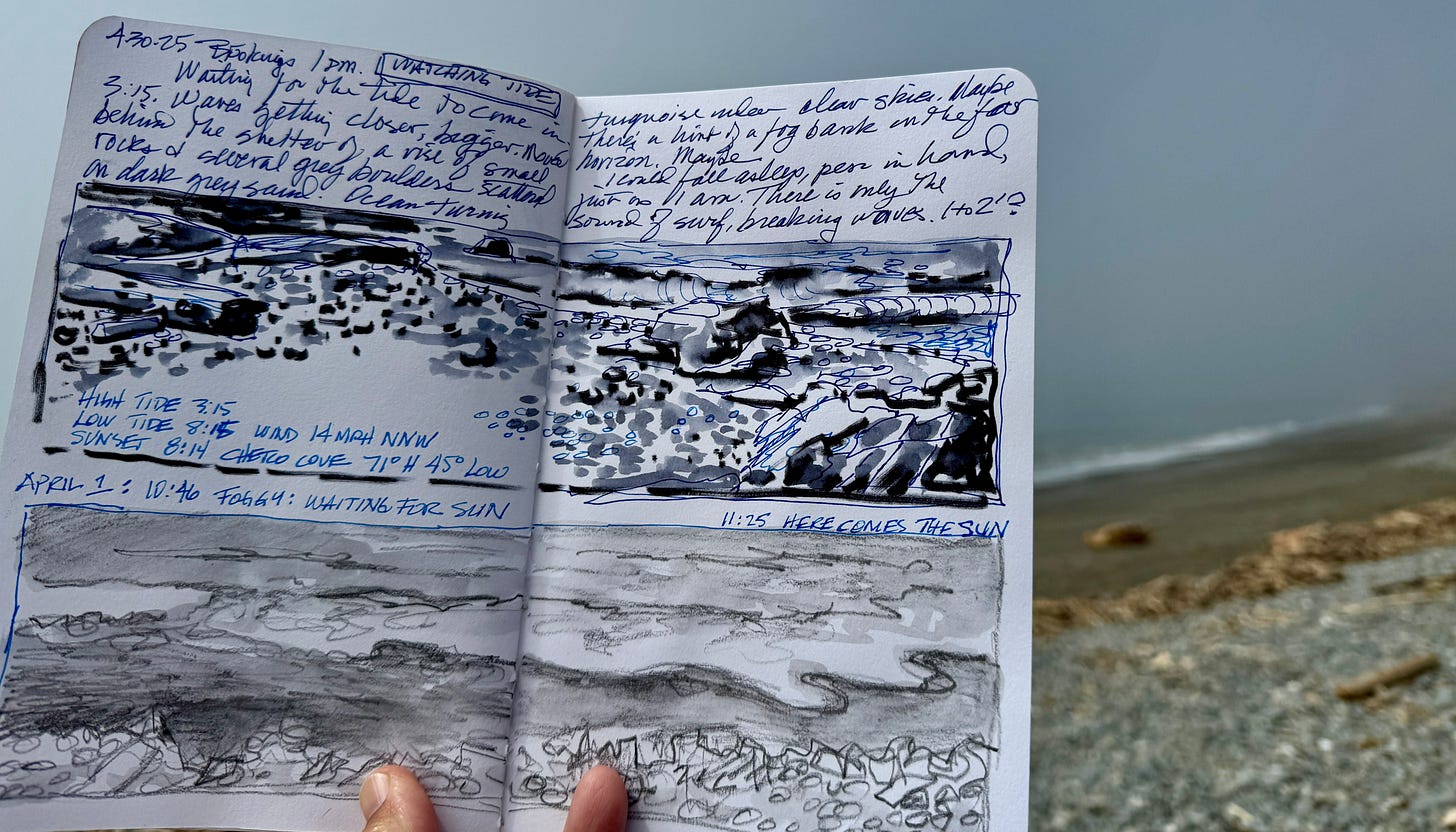 4-30-25 Brookings 1 pm. WATCHING TIDE
Waiting for the tide to come in
3:15. Waves getting closer, bigger.
behind the shelter of a rise of small
rocks & several grey boulders scattered
on dark grey sand. Ocean turning
turquoise under clear skies. Maybe
there's a hint of a fog bank on the far
horizon. Maybe
I could fall asleep, pen in hand,
just as I am. There is only the
sound of surf, breaking waves. 1 to 2'?
HIGH TIDE 3:15
LOW TIDE 8:15 WIND 14 MPH NNW
SUNSET 8:14 CHETCO COVE 71° H 45° LOW
APRIL 1: 10:46 FOGGY: WAITING FOR SUN
11:25 HERE COMES THE SUN